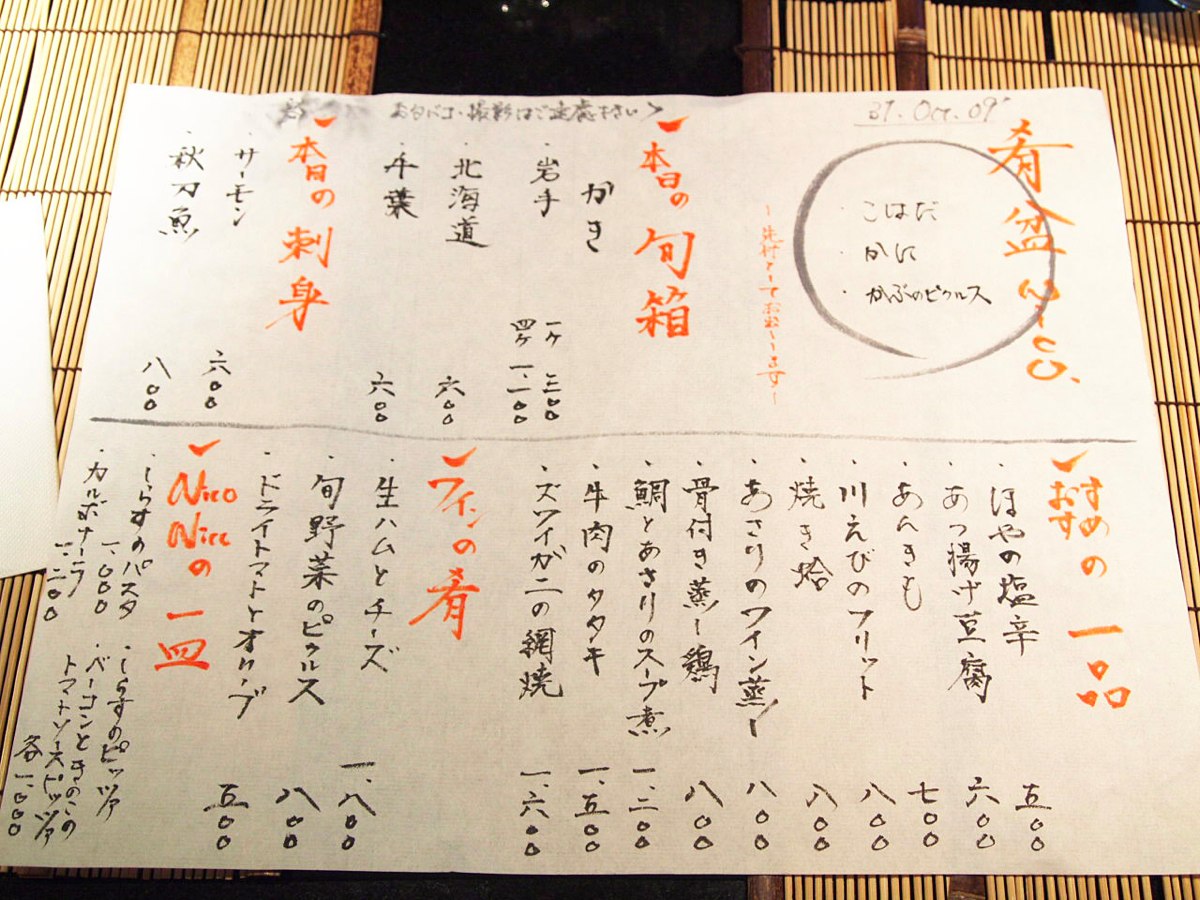 31. Oct. 09'
おタバコ・撮影はご遠慮下さい
肴盆
・こはだ
・かに
・かぶのピクルス
本日の旬箱
かき
・岩手
一ヶ 三〇〇
四ヶ 一、一〇〇
・北海道 六〇〇
・千葉 六〇〇
本日の刺身
・サーモン 六〇〇
・秋刀魚 八〇〇
おすすめの一品
・ほやの塩辛 五〇〇
・あつ揚げ豆腐 六〇〇
・あんきも 七〇〇
・川えびのフリット 八〇〇
・焼き蛤 八〇〇
・あさりのワイン蒸し 八〇〇
・骨付き蒸し鶏 八〇〇
・鯛とあさりのスープ煮 一、二〇〇
・牛肉のタタキ 一、五〇〇
・ズワイガニの網焼 一、六〇〇
ワインの肴
・生ハムとチーズ 一、八〇〇
・旬野菜のピクルス 八〇〇
・ドライトマトとオリーブ 五〇〇
Nico Niceの一皿
・しらすのパスタ 一、〇〇〇
・カルボナーラ 一、二〇〇
・しらすのピッツァ
・ベーコンときのこの
トマトソースピッツァ
各一、〇〇〇